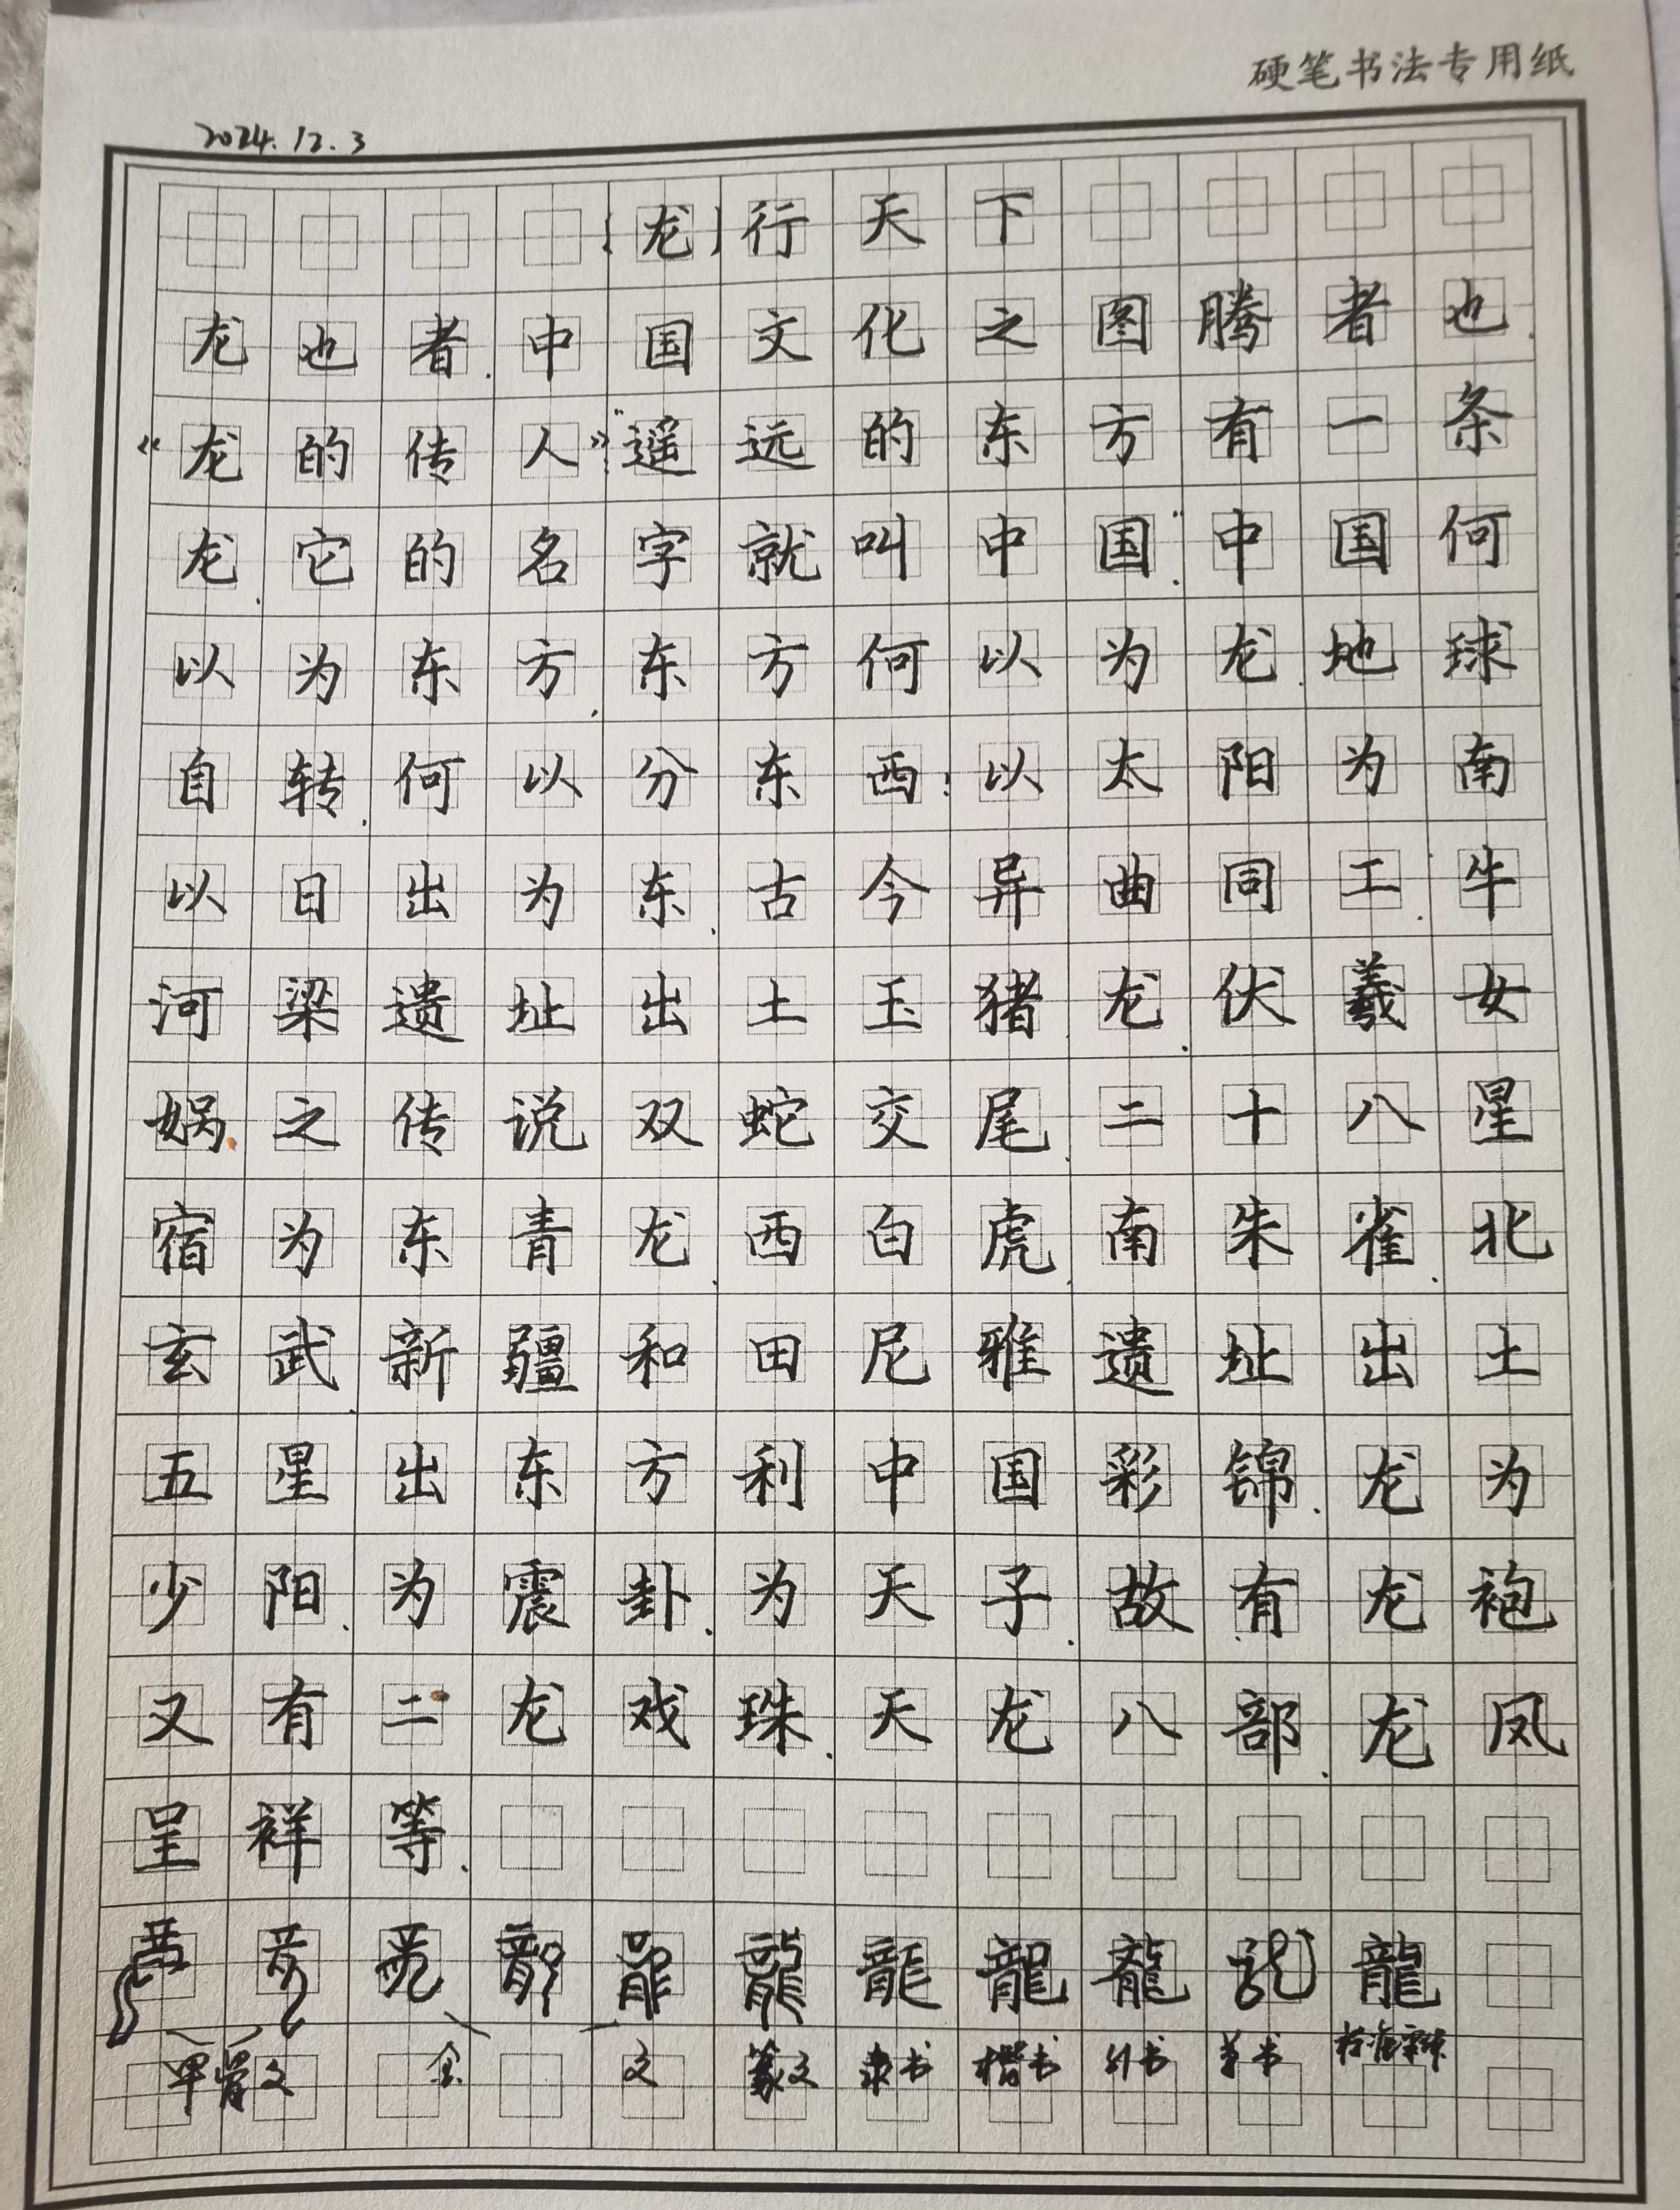 硬笔书法专用纸
2024.12.3
【龙】行天下
龙也者.中国文化之图腾者也.
“龙的传人”:“遥远的东方有一条
龙.它的名字就叫中国”.中国何
以为东方.东方何以为龙.地球
自转.何以分东西:以太阳为南.
以日出为东.古今异曲同工.牛
河梁遗址出土玉猪龙.伏羲女
娲之传说双蛇交尾.二十八星
宿为东青龙.西白虎.南朱雀.北
玄武.新疆和田尼雅遗址出土
五星出东方利中国彩锦.龙为
少阳.为震卦.为天子.故有龙袍
又有二龙戏珠.天龙八部.龙凤
呈祥等.
龍 龍 龍 龍 龍 龍 龍 龍 龍 龍 龍
甲骨文 金 文 篆文 隶书 楷书 行书 草书